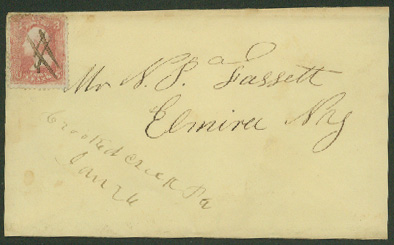 Mr N. P. Fassett
a
Elmira Ny
Crooked Creek Pa
Jan 26